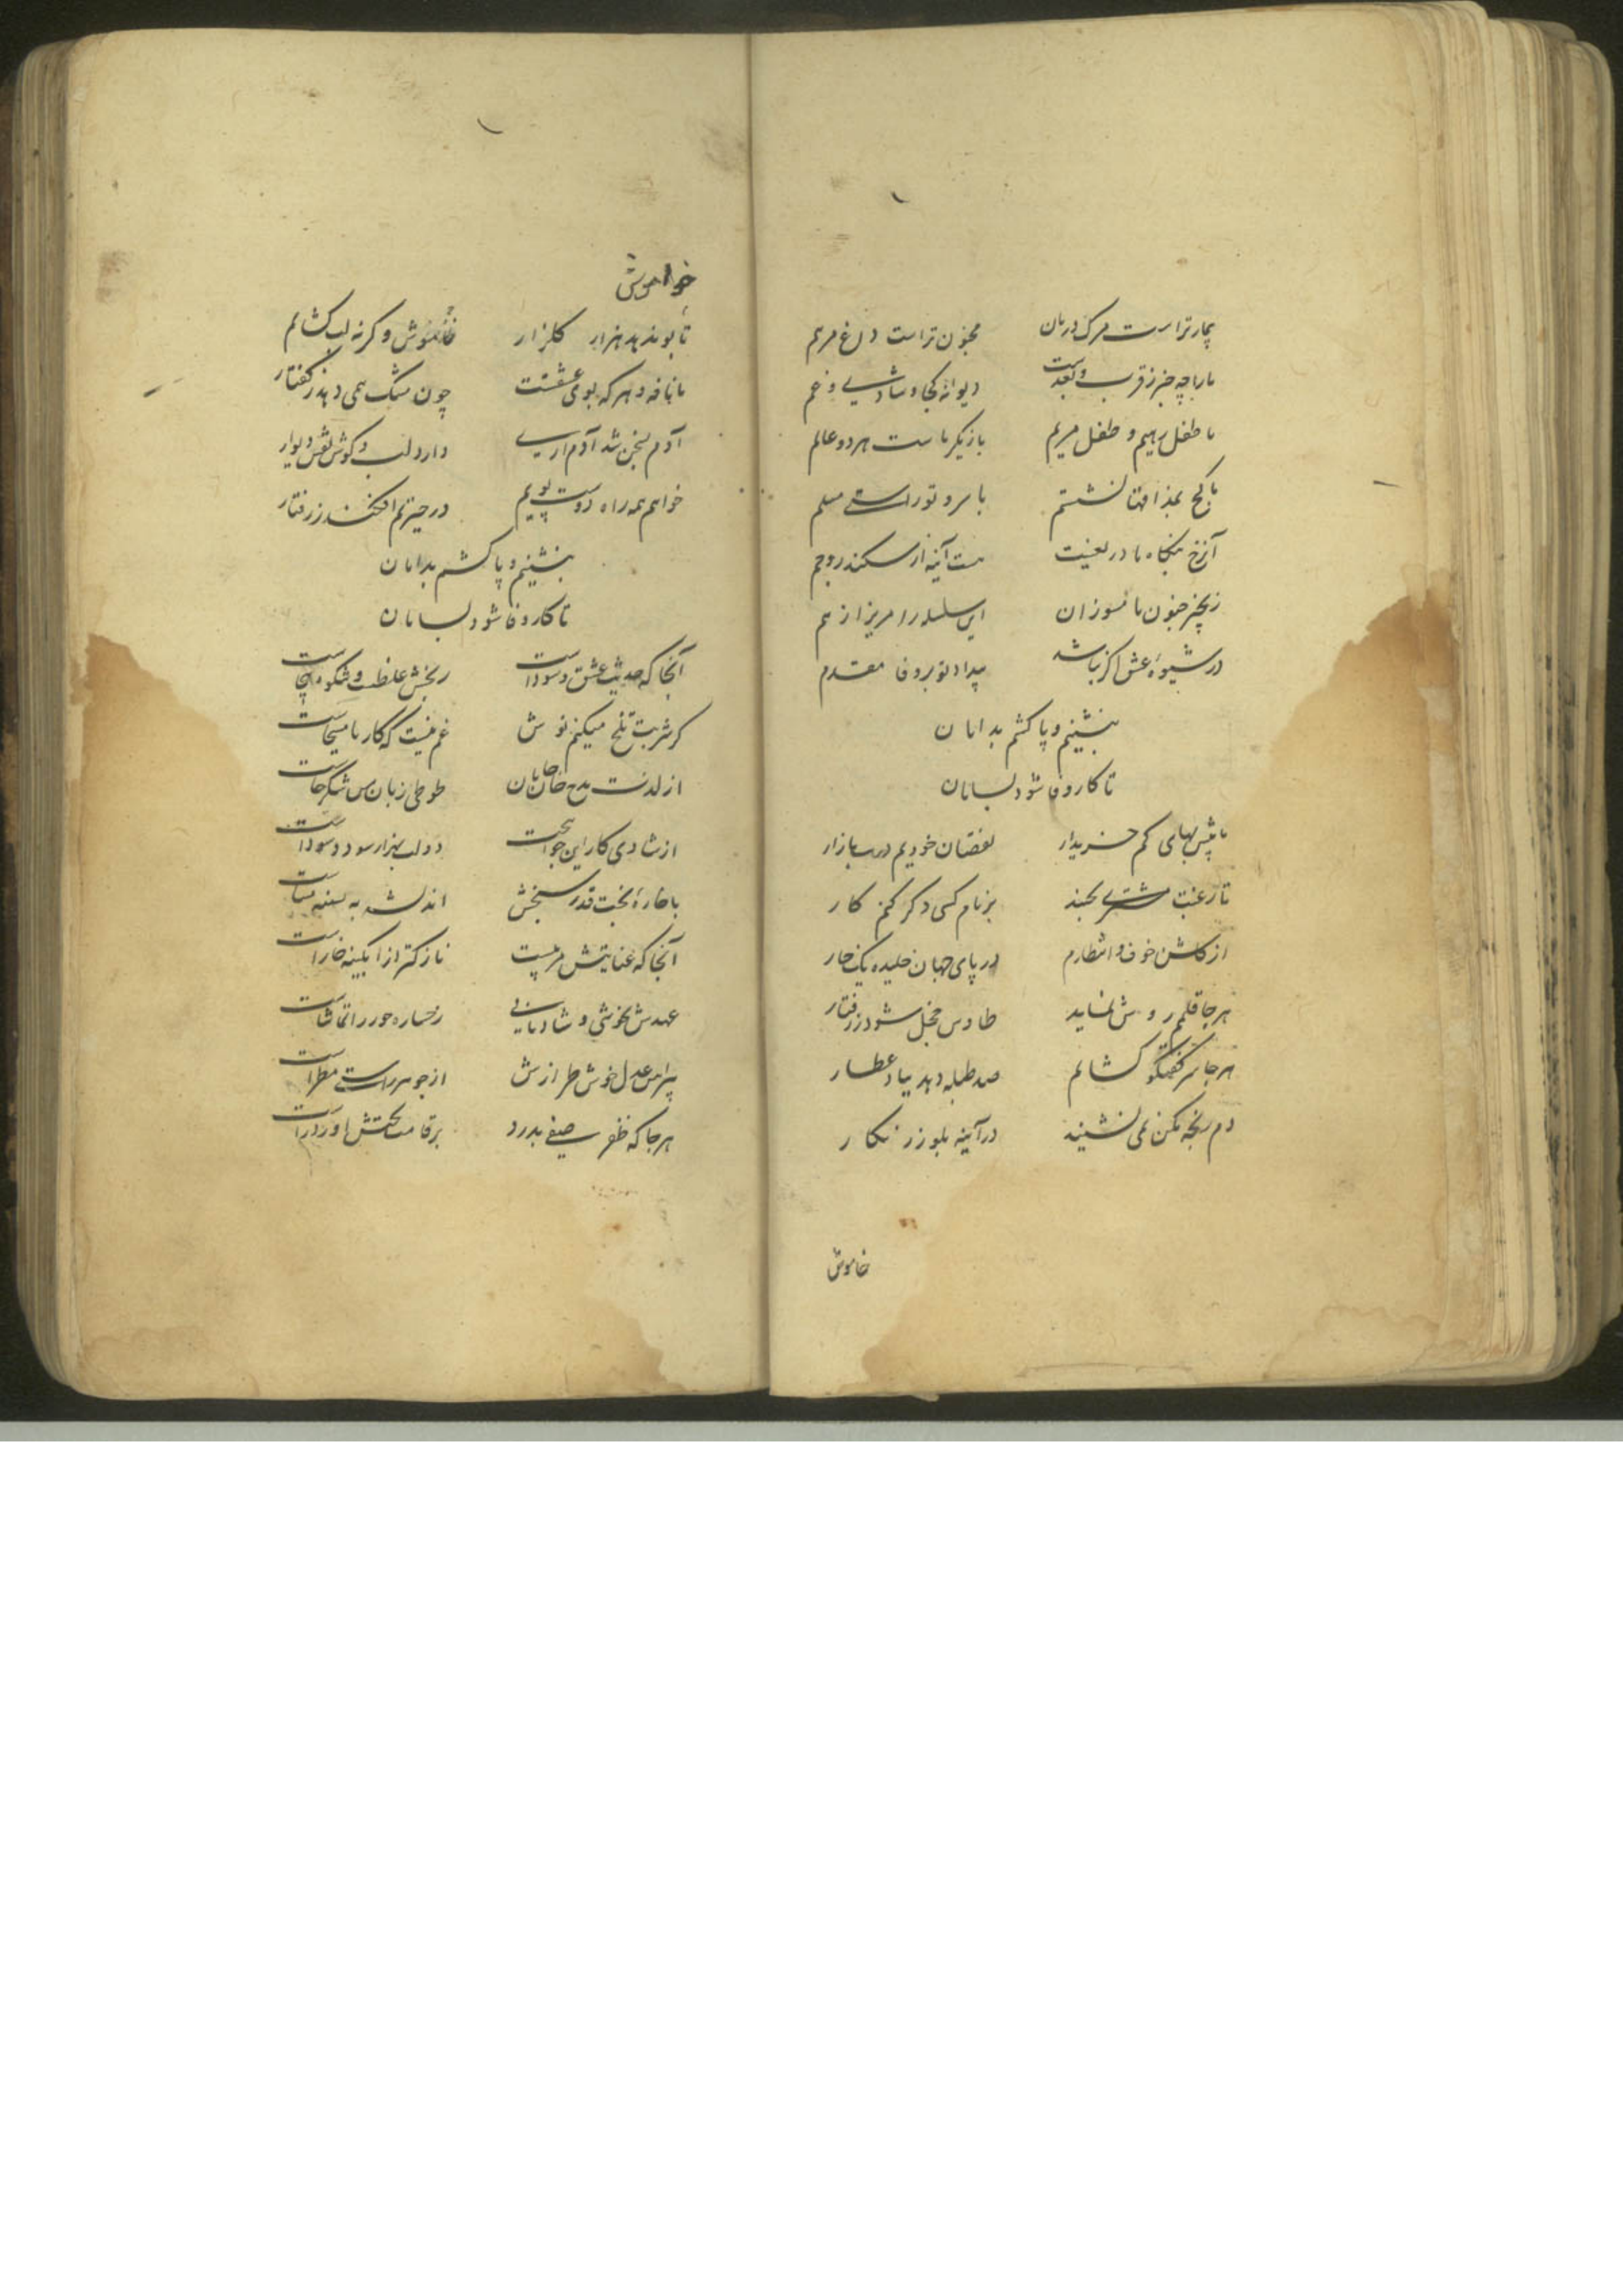 بیمار تراست مرک درمان مجنون تراست داغ مرهم
ما را چه خبر ز قرب و بعدست دیوانه کجا و شادیی و غم
ما طفل رهیم و طفل مریم بازیکر ماست هر دو عالم
ما کج نشستیم با سرو تو راستی مسلم
آن رخ بنکاه ما در نیست هست آینه از سکندر و جم
زنجیر جنون ما مسوزان این سلسله را مریز از هم
در شیوهٔ عشق اکر نباشد بیداد تو بر وفا مقدم
بنشینم و پا کشم بدامان
تا کار وفا شود بسامان
ما پیش بهای کم خریدار نقصان خودیم در بازار
تا رغبت مشتری بجنبد بر نام کسی دکر کنم کار
از کلشن خوف و انتظارم در پای جهان خلیده یک خار
هر جا قلمم روش نماید طاوس خجل شود ز رفتار
هر جا سر گفتگو کشایم صد طبله دهد بباد عطار
دم رنجه مکن نمی نشیند در آینه بلور زنکار
خاموش
خواموش
تا بو ندهد هزار کلزار خاموش و کرنه لب کشایم
با نافه و هر که بوی عشقست چون مشک همی دهد ز کفتار
آدم بسخن شد آدم آری دارد لب و کوش نقش دیوار
خواهم همه راه دوست پویم در حیرتم افکند ز رفتار
بنشینم و پا کشم بدامان
تا کار وفا شود بسامان
آنجا که حدیث عشق و سوداست رنجش غلطست و شکوه بیجاست
کر شربت تلخ میکنم نوش غم نیست که کار با مسیحاست
از لذت مدح خان خانان طوطی زبان من شکرخاست
از شادی کار این جوانبخت دولت بهزار سود و سوداست
با خارهٔ بخت قدر سنجش اندیشه به
آنجا که عنایتش مربیست نازکتر از آبکینه خاراست
عهدش بخوشی و شادمانی رخساره حور را تماشاست
پیراهن عدل خوش طرازش از جوهر راستی مطراست
هر جا که ظفر صفی بدرد بر قامت